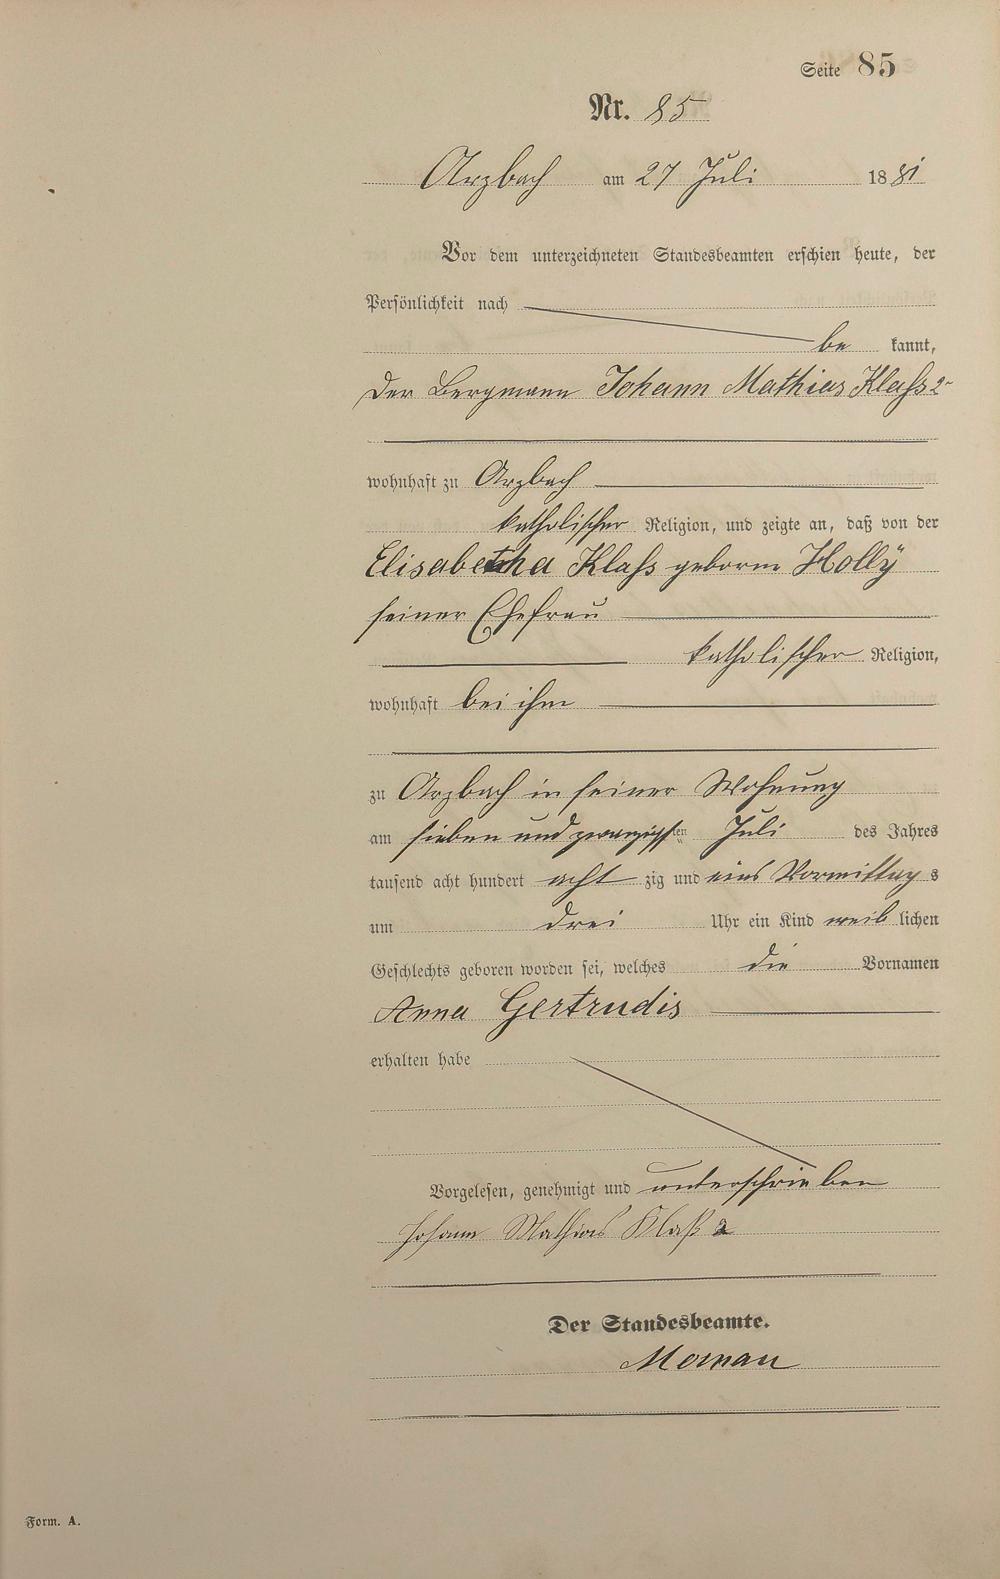 Seite 85
Nr. 85
Arzbach am 27 Juli 1881
Vor dem unterzeichneten Standesbeamten erschien heute, der
Persönlichkeit nach
be kannt,
der Bergmann Johann Mathias Klaß 2r
wohnhaft zu Arzbach
katholischer Religion, und zeigte an, daß von der
Elisabetha Klaß geborne Hollÿ
seiner Ehefrau
katholischer Religion,
wohnhaft bei ihm
zu Arzbach in seiner Wohnung
am sieben und zwanzigsten Juli des Jahres
tausend acht hundert acht zig und eins Vormittag s
um drei Uhr ein Kind weib lichen
Geschlechts geboren worden sei, welches die Vornamen
Anna Gertrudis
erhalten habe
Vorgelesen, genehmigt und unterschrieben
Johann Mathias Klaß 2
Der Standesbeamte.
Form. A.